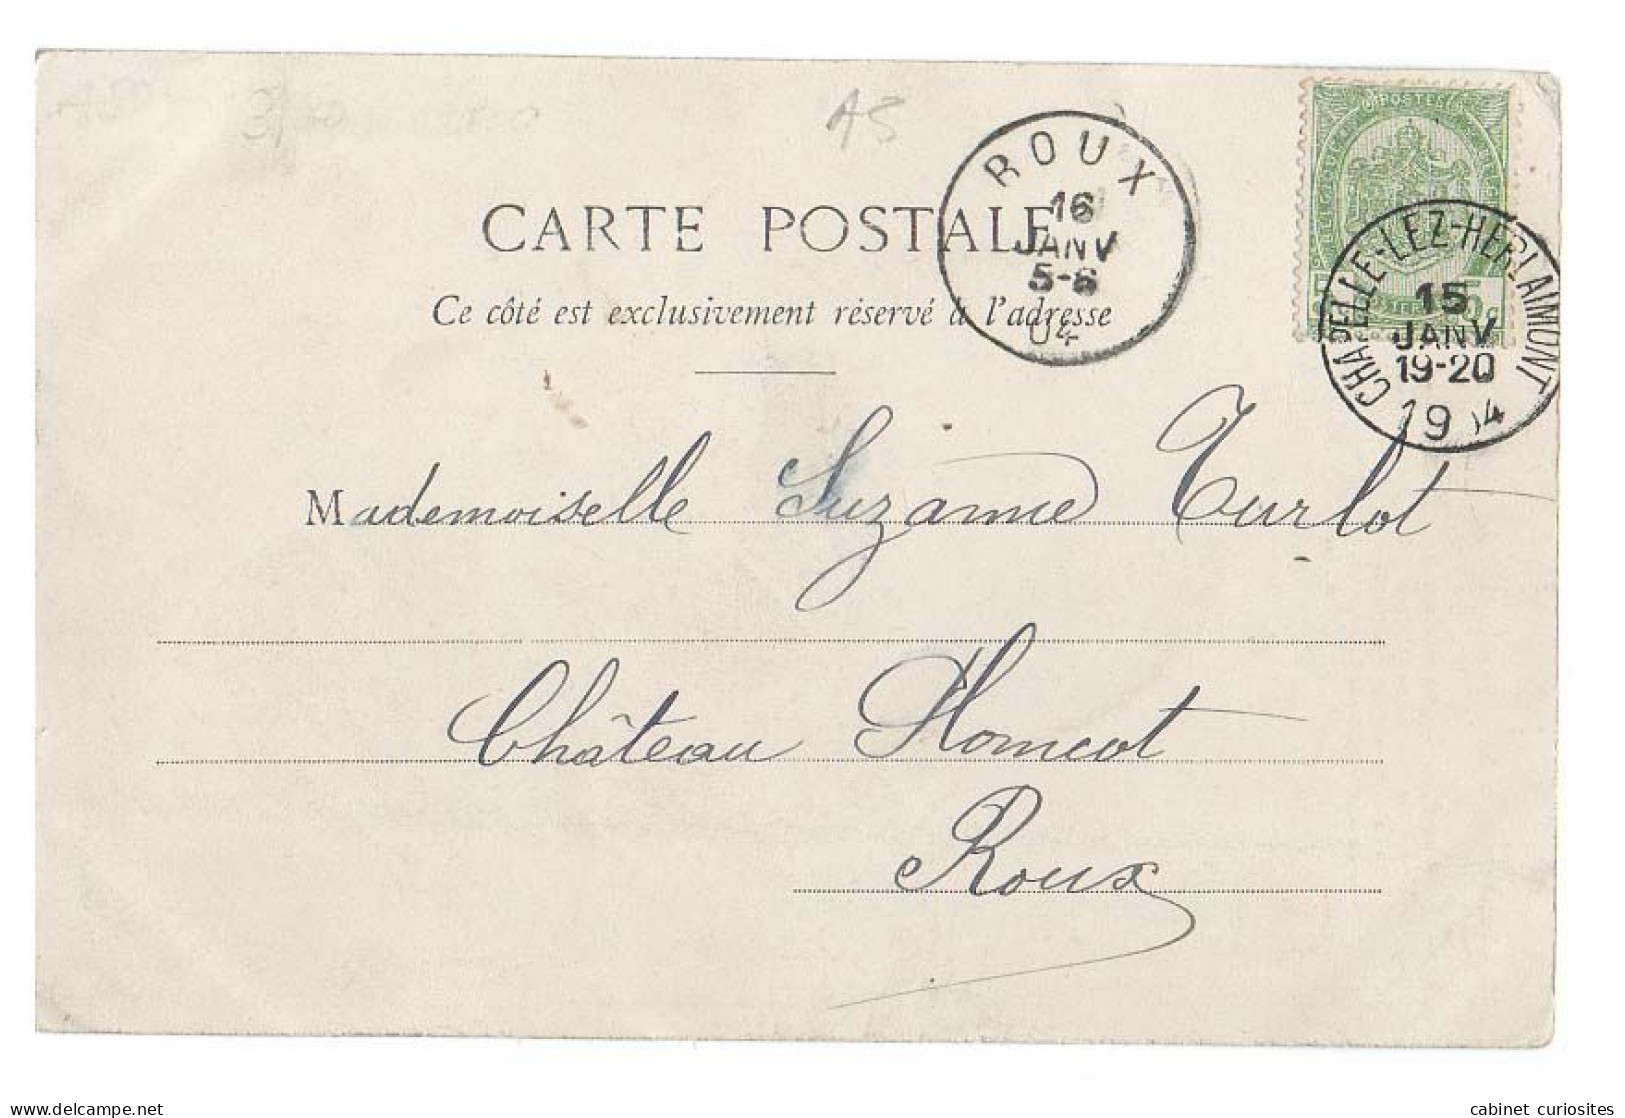 A5
POSTES
ROUX
16
JANV
5-6
04
CHAPELLE-LEZ-HERLAIMONT
15
JANV
19-20
1904
CARTE POSTALE
Ce côté est exclusivement réservé à l'adresse
Mademoiselle Suzanne Turlot
Château Homcot
Roux
cabinet curiosites